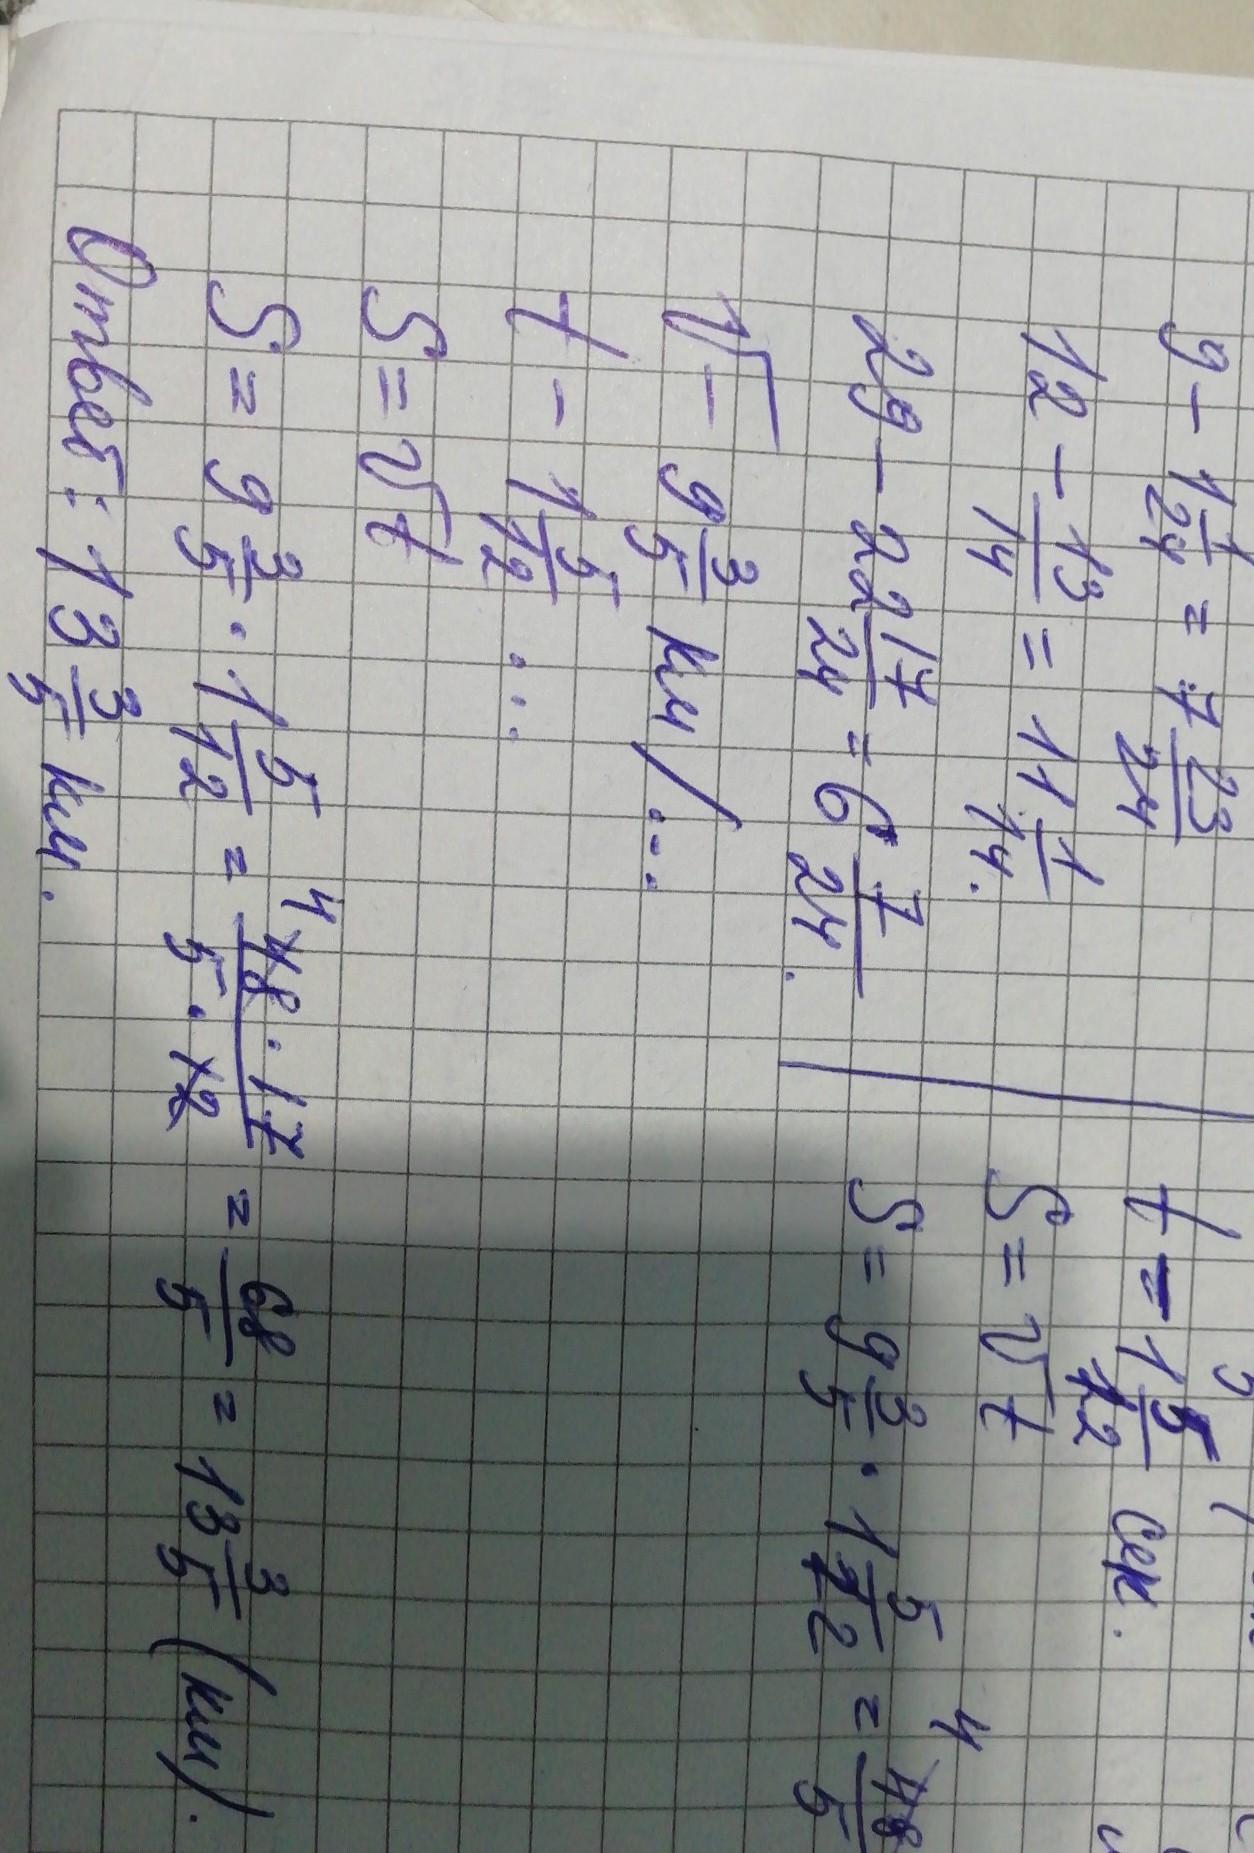 9 - 1 1/24 = 7 23/24
12 - 13/14 = 11 1/14.
29 - 22 17/24 = 6 7/24.
V - 9 3/5 км/...
t - 1 5/12 ...
S = Vt
S = 9 3/5 · 1 5/12 = 48 · 17 / 5 · 12 = 68/5 = 13 3/5 (км).
4
Ответ: 13 3/5 км.
t - 1 5/12 сек.
S = Vt
S = 9 3/5 · 1 5/12 = 48/5
4